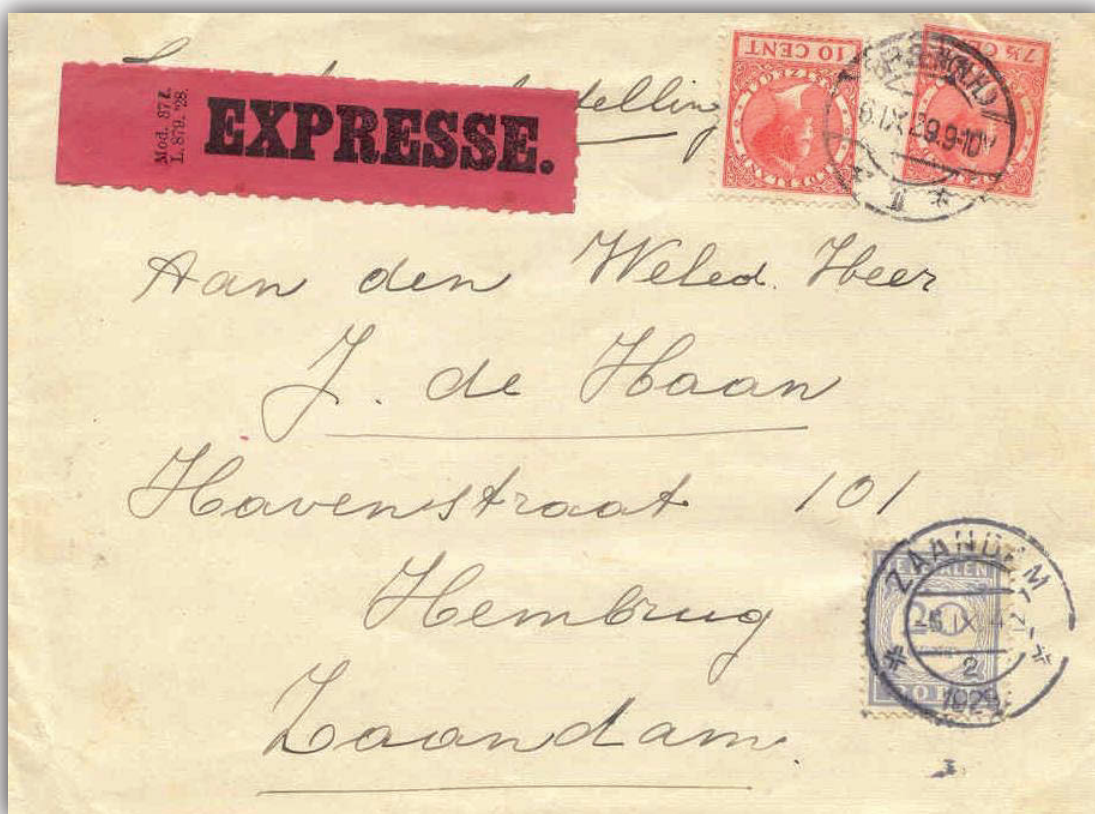 Mod. 87 l.
L. 879. '28.
EXPRESSE.
tellin
10 CENT
7½ CENT
6.IX 29.9-10V
Aan den Weled. Heer
J. de Haan
Havenstraat 101
Hembrug
Zaandam.
ZAANDAM
TE BETALEN
20
-6.IX
2
1929